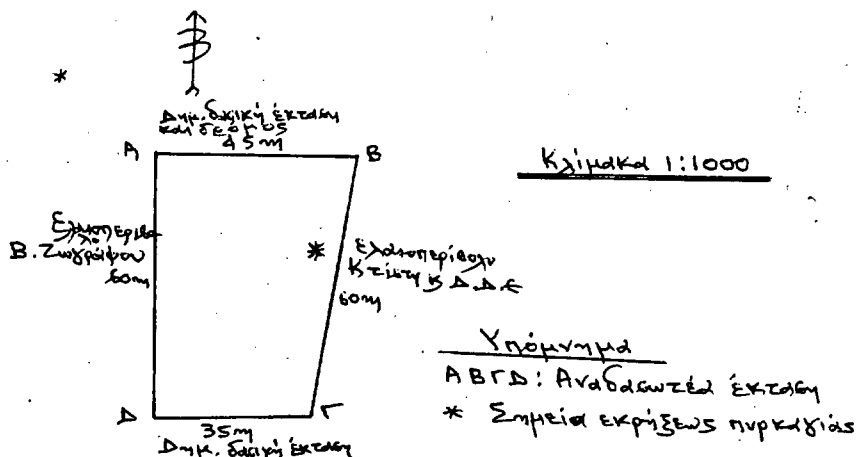 Β
*
Δημ. δασική έκταση
και δρόμος
45m
Α
Β
Κλίμακα 1:1000
Ελαιοπερίβο
λο
Β. Ζωγράφου
60m
*
Ελαιοπερίβολο
Κτίστη κ Δ.Δ.Ε
60m
Υπόμνημα
ΑΒΓΔ: Αναδασωτέα έκταση
* Σημεία εκρήξεως πυρκαγιάς
Δ
Γ
35m
Δημ. δασική έκταση